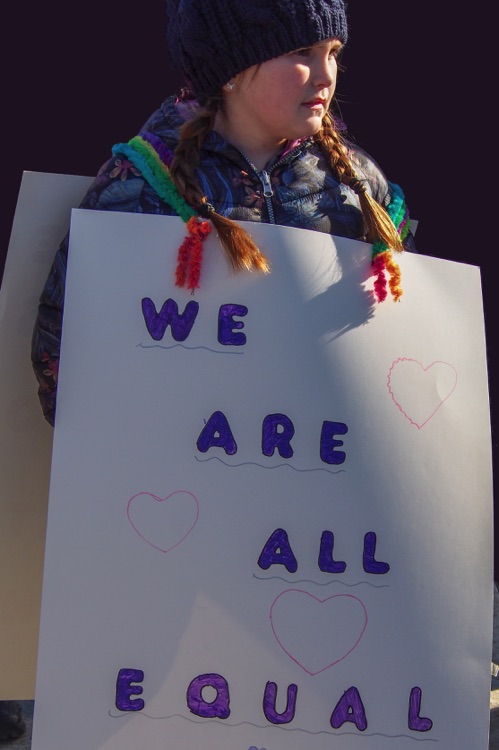 WE
ARE
ALL
EQUAL